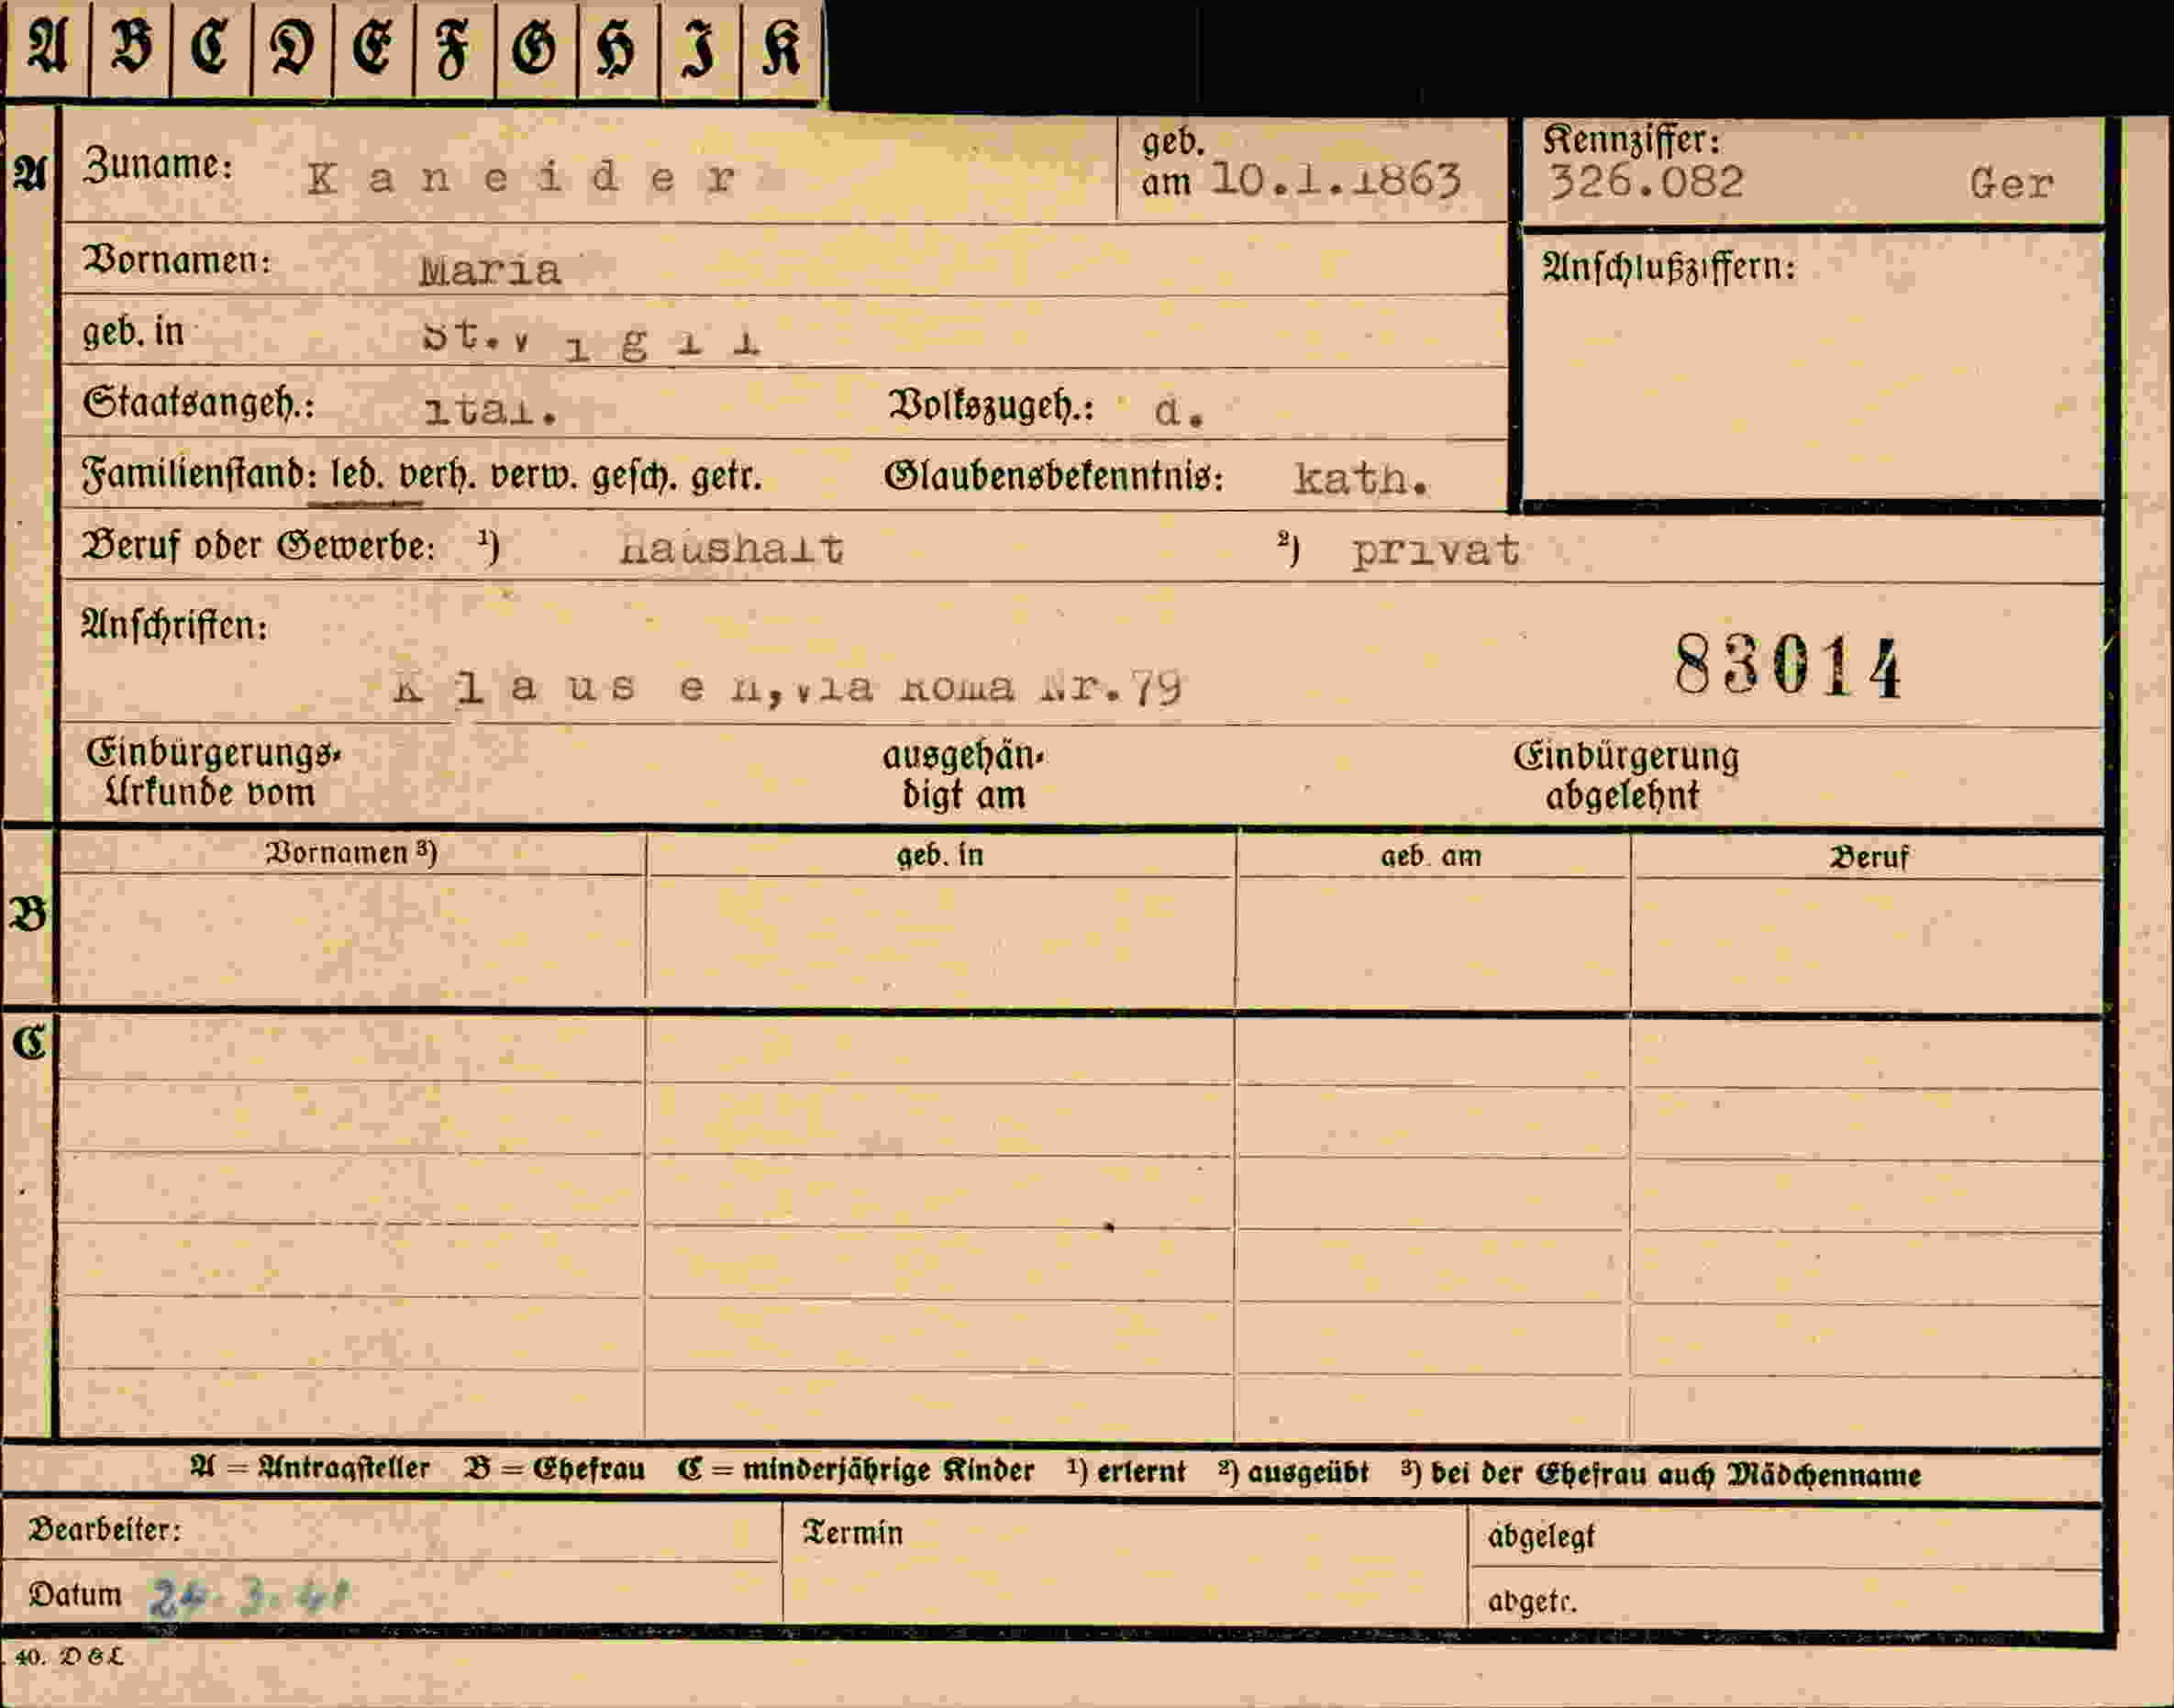 A B C D E F G H I K
A Zuname: Kaneider geb. am 10.1.1863 Kennziffer: 326.082 Ger
Vornamen: Maria Anschlußziffern:
geb. in St.Vigil
Staatsangeh.: ital. Volkszugeh.: d.
Familienstand: led. verh. verw. gesch. getr. Glaubensbekenntnis: kath.
Beruf oder Gewerbe: ¹) Haushalt ²) privat
Anschriften:
Klausen,via Roma Nr.79 83014
Einbürgerungs-Urkunde vom ausgehän-digt am Einbürgerung abgelehnt
Vornamen ³) geb. in geb. am Beruf
B
C
A = Antragsteller B = Ehefrau C = minderjährige Kinder ¹) erlernt ²) ausgeübt ³) bei der Ehefrau auch Mädchenname
Bearbeiter: Termin abgelegt
Datum 24.3.41 abgetr.
40. D & L